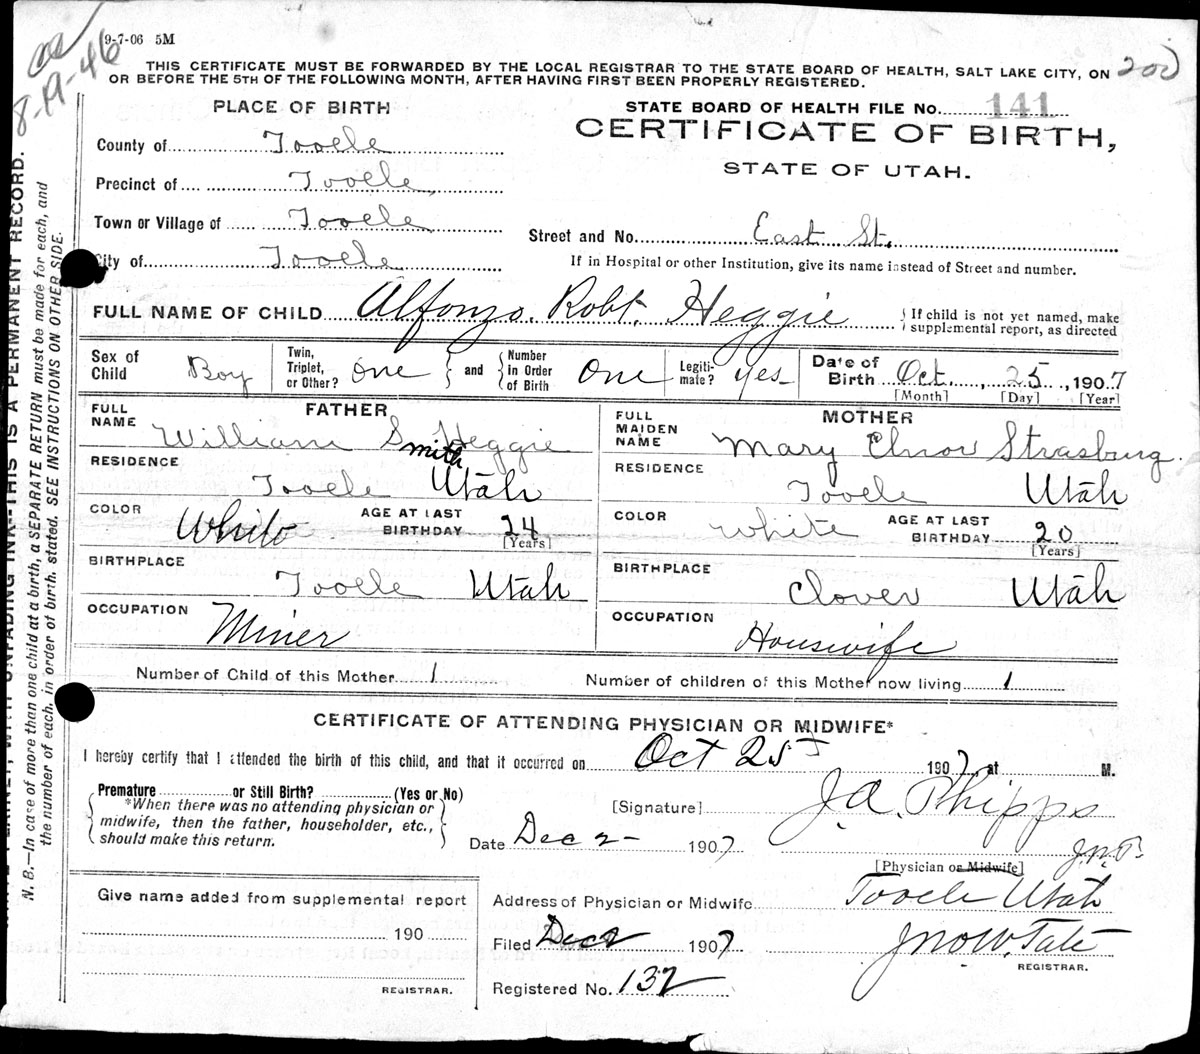 9-7-06 5M
8-19-46
THIS CERTIFICATE MUST BE FORWARDED BY THE LOCAL REGISTRAR TO THE STATE BOARD OF HEALTH, SALT LAKE CITY, UTAH, ON
OR BEFORE THE 5TH OF THE FOLLOWING MONTH, AFTER HAVING FIRST BEEN PROPERLY REGISTERED.
200
PLACE OF BIRTH
County of Tooele
Precinct of Tooele
Town or Village of Tooele
City of Tooele
STATE BOARD OF HEALTH FILE No. 141
CERTIFICATE OF BIRTH,
STATE OF UTAH.
Street and No. East St.
If in Hospital or other Institution, give its name instead of Street and number.
FULL NAME OF CHILD Alfonzo Robt. Heggie { If child is not yet named, make
supplemental report, as directed
Sex of Child Boy Twin, Triplet, or Other? One and Number in Order of Birth One Legiti-mate? Yes Date of Birth Oct 25, 1907
[Month] [Day] [Year]
FATHER
FULL NAME William S Heggie
Smith
RESIDENCE
Tooele Utah
COLOR White AGE AT LAST BIRTHDAY 24
[Years]
BIRTHPLACE
Tooele Utah
OCCUPATION
Miner
MOTHER
FULL MAIDEN NAME Mary Elnor Strasburg.
RESIDENCE
Tooele Utah
COLOR White AGE AT LAST BIRTHDAY 20
[Years]
BIRTHPLACE
Clover Utah
OCCUPATION
Housewife
Number of Child of this Mother 1 Number of children of this Mother now living 1
CERTIFICATE OF ATTENDING PHYSICIAN OR MIDWIFE*
I hereby certify that I attended the birth of this child, and that it occurred on Oct 25 1907, at M.
Premature or Still Birth? (Yes or No)
*When there was no attending physician or
midwife, then the father, householder, etc.,
should make this return.
[Signature] J.A. Phipps
Date Dec 2 - 1907
J.N.T.
[Physician or Midwife]
Address of Physician or Midwife Tooele Utah
Filed Dec 2 1907 Jno W. Tate
REGISTRAR.
Registered No. 132
Give name added from supplemental report
190
REGISTRAR.
N. B.—In case of more than one child at a birth, a SEPARATE RETURN must be made for each, and
the number of each, in order of birth, stated. SEE INSTRUCTIONS ON OTHER SIDE.
WITH UNFADING INK--THIS IS A PERMANENT RECORD.